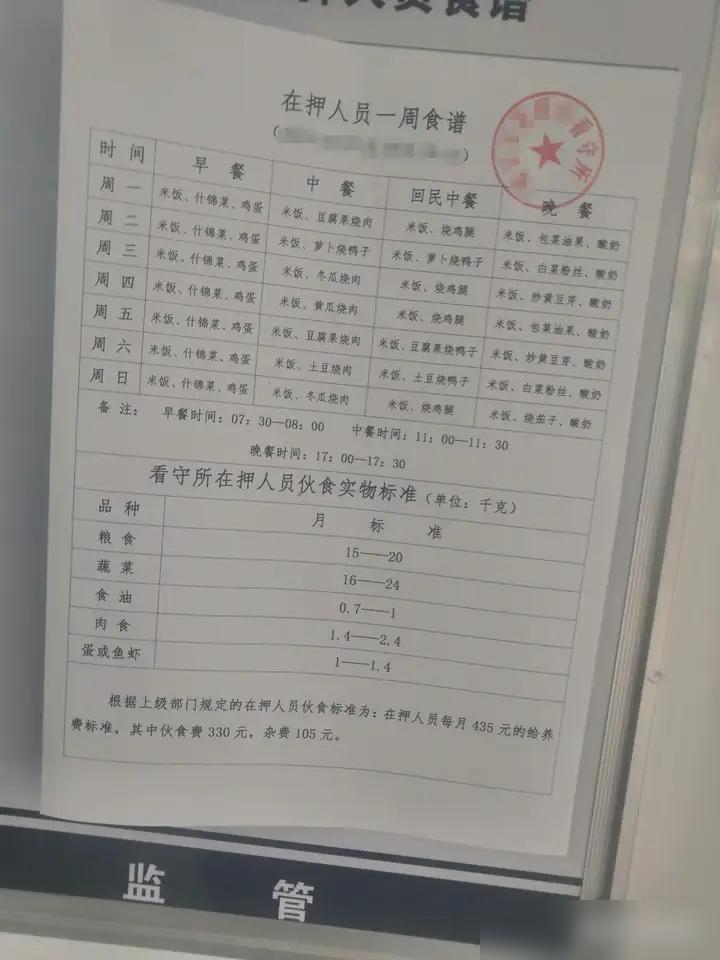 押人员食谱
在押人员一周食谱
看守所
时间 早餐 中餐 回民中餐 晚餐
周一 米饭、什锦菜、鸡蛋 米饭、豆腐果烧肉 米饭、烧鸡腿 米饭、包菜油果、酸奶
周二 米饭、什锦菜、鸡蛋 米饭、萝卜烧鸭子 米饭、萝卜烧鸭子 米饭、白菜粉丝、酸奶
周三 米饭、什锦菜、鸡蛋 米饭、冬瓜烧肉 米饭、烧鸡腿 米饭、炒黄豆芽、酸奶
周四 米饭、什锦菜、鸡蛋 米饭、黄瓜烧肉 米饭、烧鸡腿 米饭、包菜油果、酸奶
周五 米饭、什锦菜、鸡蛋 米饭、豆腐果烧肉 米饭、豆腐果烧鸭子 米饭、炒黄豆芽、酸奶
周六 米饭、什锦菜、鸡蛋 米饭、土豆烧肉 米饭、土豆烧鸭子 米饭、白菜粉丝、酸奶
周日 米饭、什锦菜、鸡蛋 米饭、冬瓜烧肉 米饭、烧鸡腿 米饭、烧茄子、酸奶
备注： 早餐时间：07：30—08：00 中餐时间：11：00—11：30
晚餐时间：17：00—17：30
看守所在押人员伙食实物标准（单位：千克）
品种 月标准
粮食 15——20
蔬菜 16——24
食油 0.7——1
肉食 1.4——2.4
蛋或鱼虾 1——1.4
根据上级部门规定的在押人员伙食标准为：在押人员每月435元的给养
费标准，其中伙食费330元，杂费105元。
监管